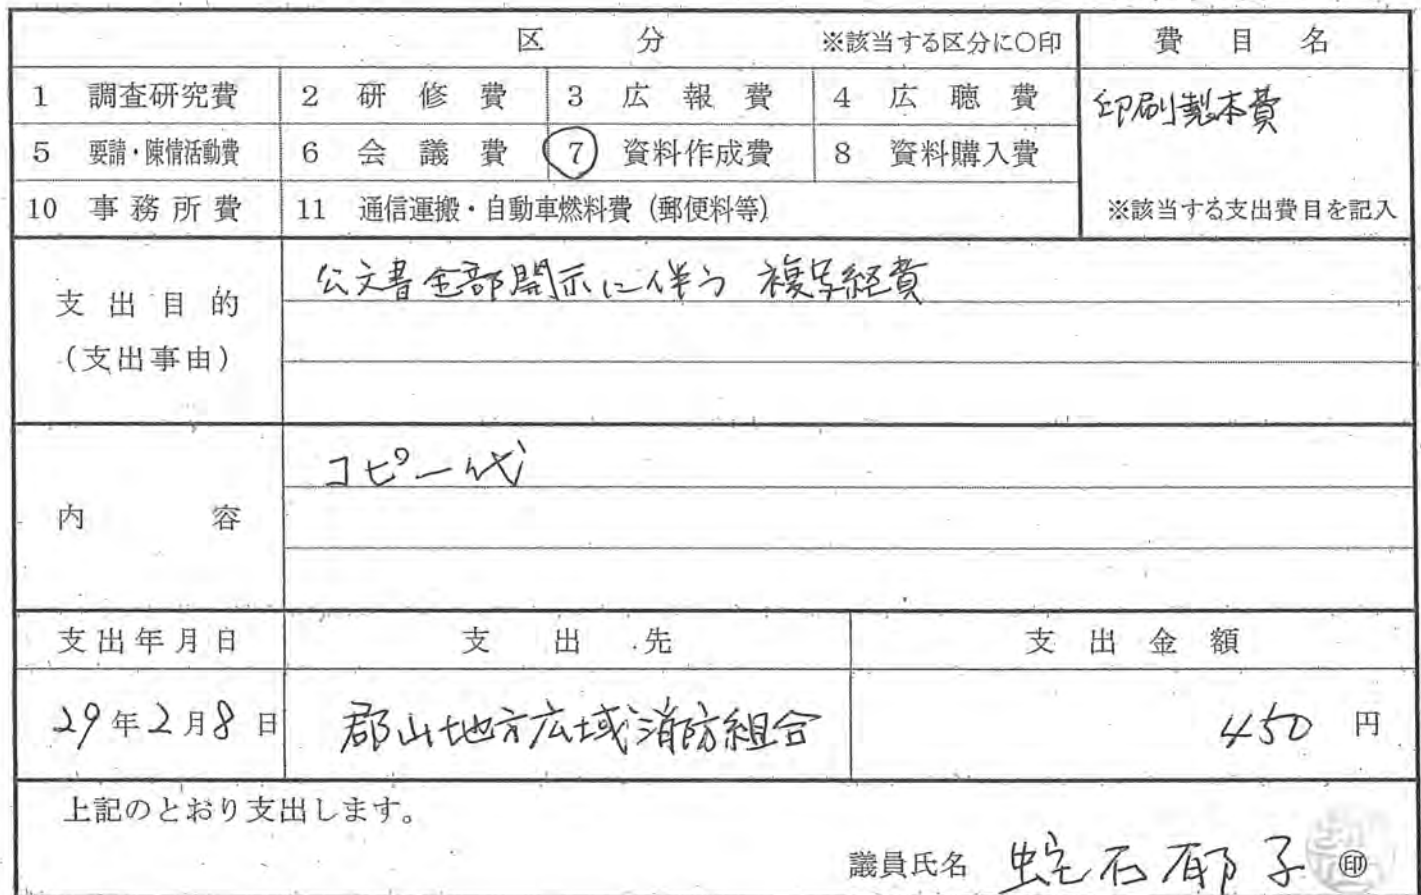 区 分 ※該当する区分に○印 費 目 名
1 調査研究費 2 研 修 費 3 広 報 費 4 広 聴 費 印刷製本費
5 要請・陳情活動費 6 会 議 費 7 資料作成費 8 資料購入費
10 事 務 所 費 11 通信運搬・自動車燃料費（郵便料等） ※該当する支出費目を記入
支 出 目 的
（支出事由）
公文書全部開示に伴う 複写経費
内 容 コピー代
支出年月日 支 出 先 支 出 金 額
29年2月8日 郡山地方広域消防組合 450 円
上記のとおり支出します。
議員氏名 蛇石郁子 ㊞